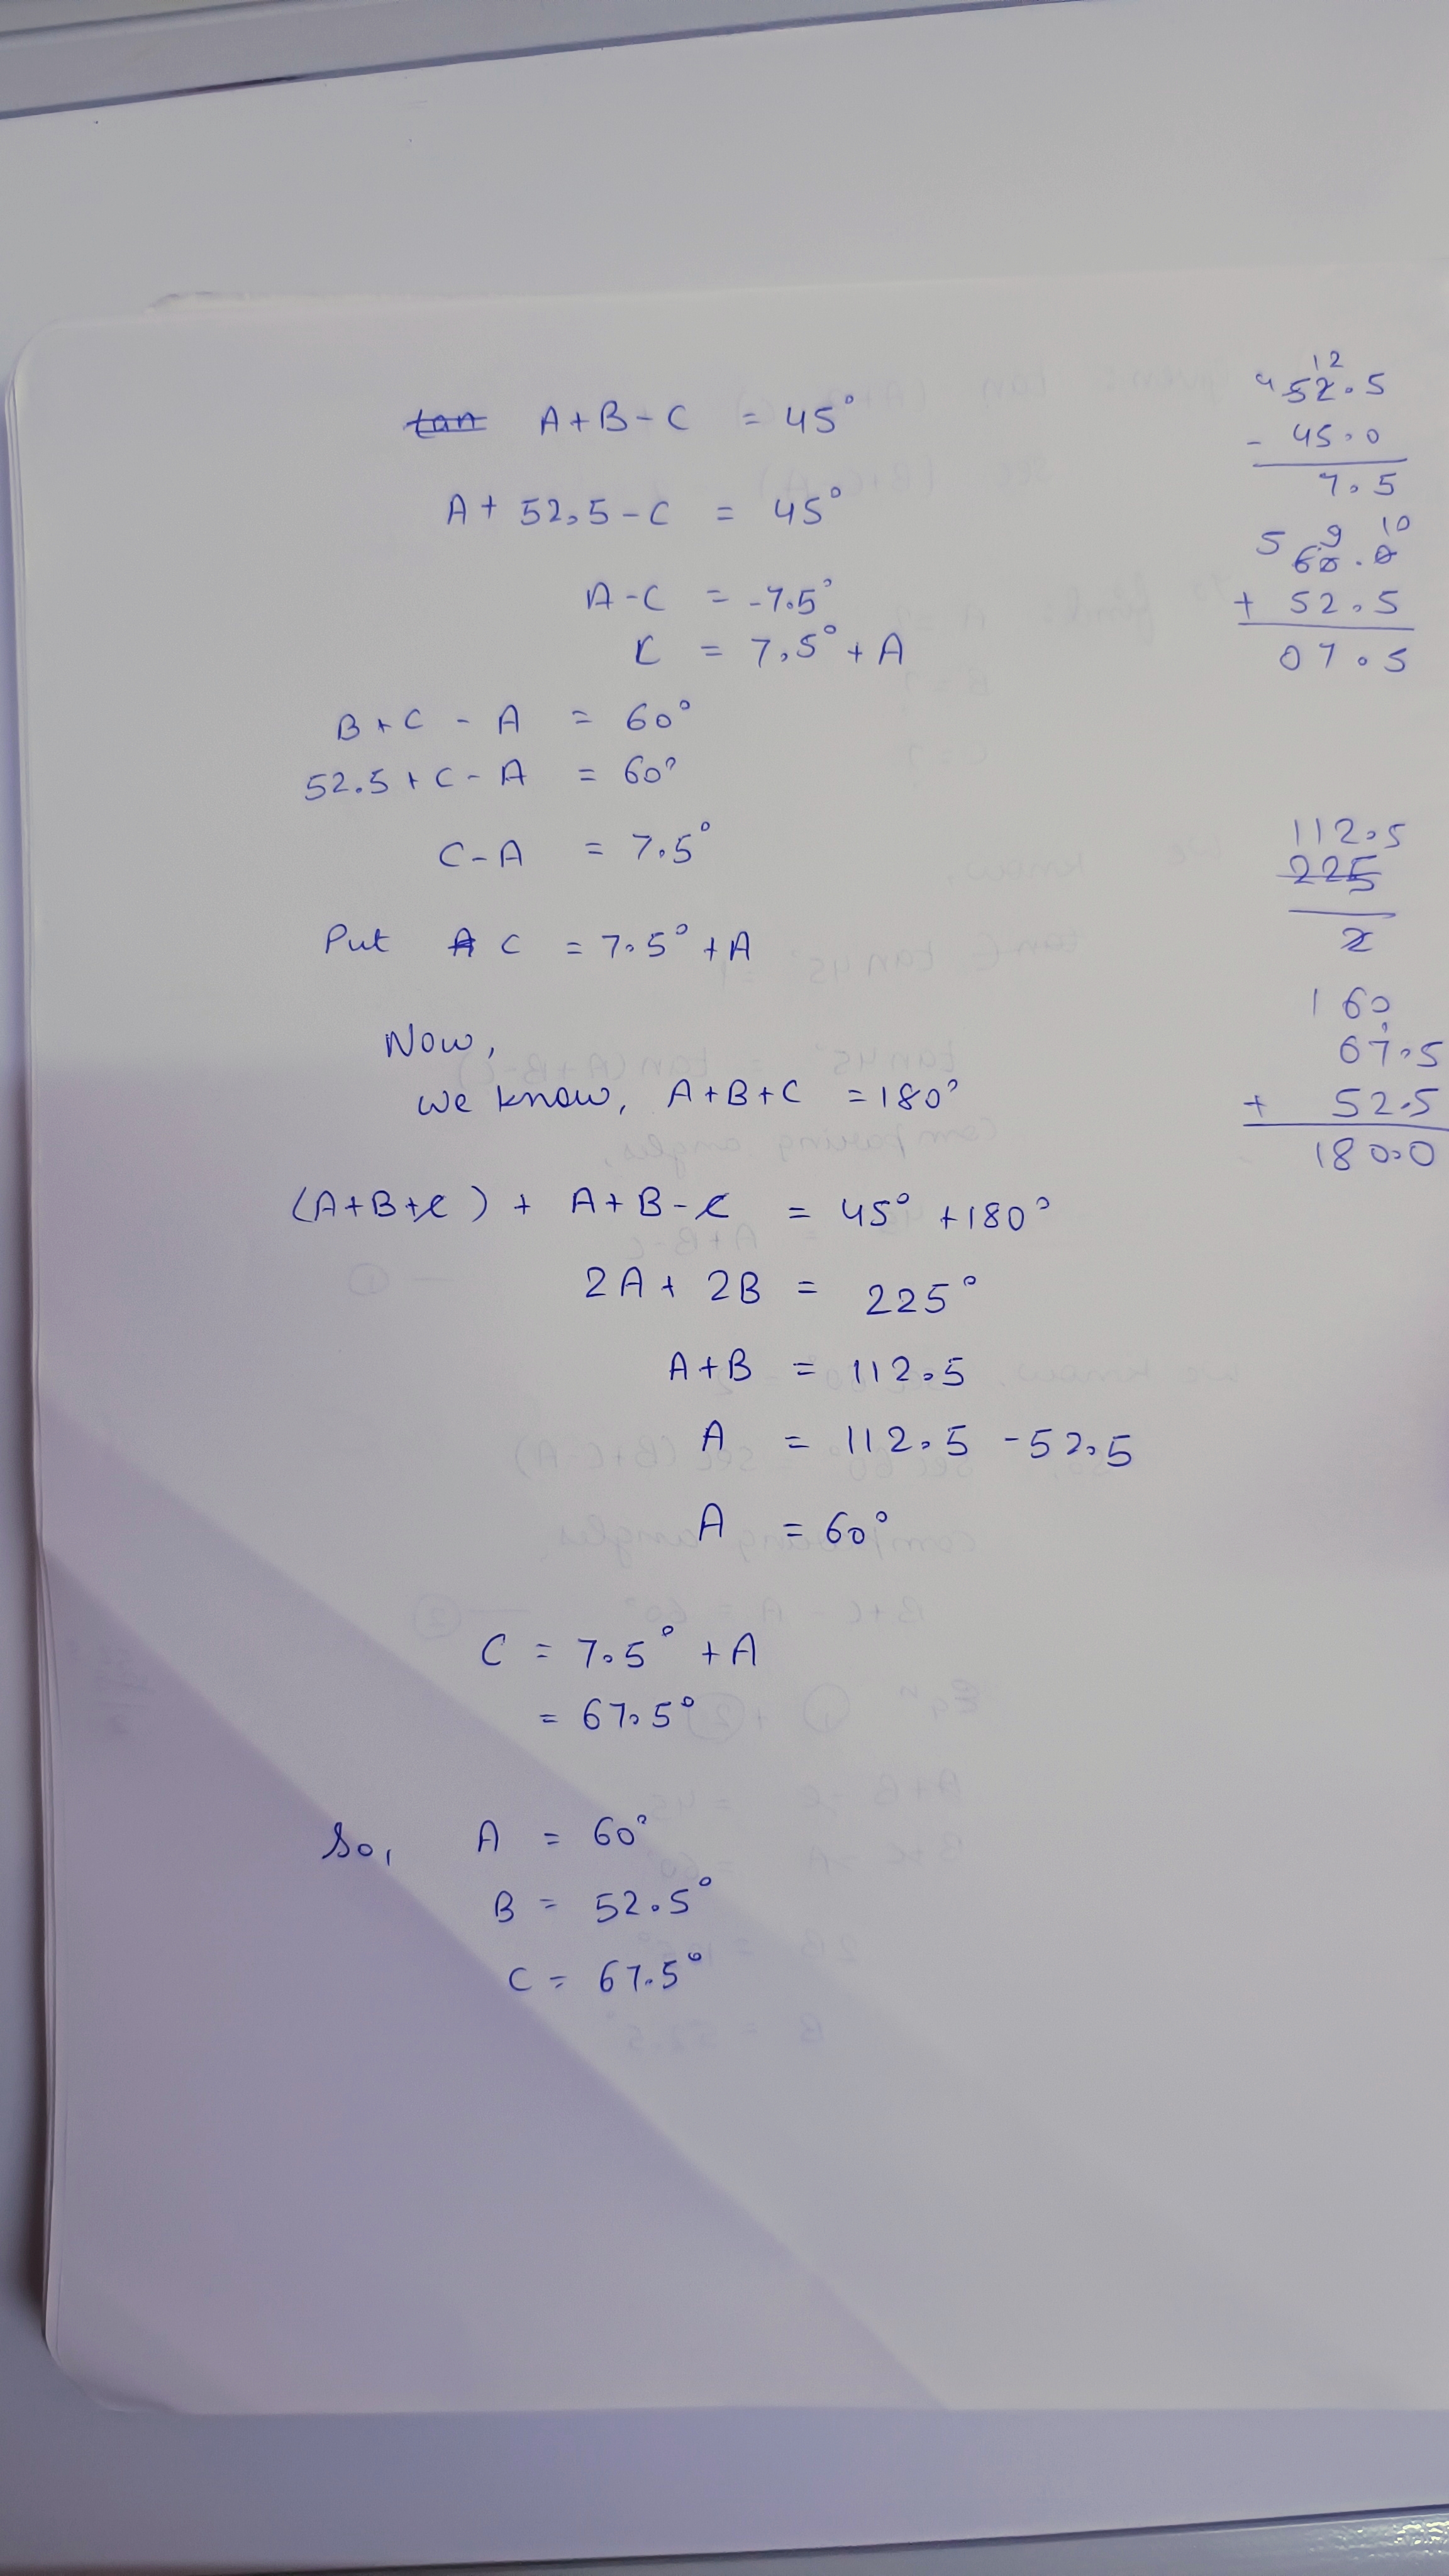 tan A+B-C = 45°
A+ 52.5-C = 45°
A-C = -7.5°
C = 7.5° + A
B+C - A = 60°
52.5+C-A = 60°
C-A = 7.5°
Put A C = 7.5° + A
Now,
we know, A+B+C = 180°
(A+B+C) + A+B-C = 45° +180°
2A+ 2B = 225°
A+B = 112.5
A = 112.5 -52.5
A = 60°
C = 7.5° + A
= 67.5°
So, A = 60°
B = 52.5°
C = 67.5°
4 12
52.5
- 45.0
7.5
5 9 10
60.0
+ 52.5
07.5
112.5
225
2
160
67.5
+ 52.5
180.0